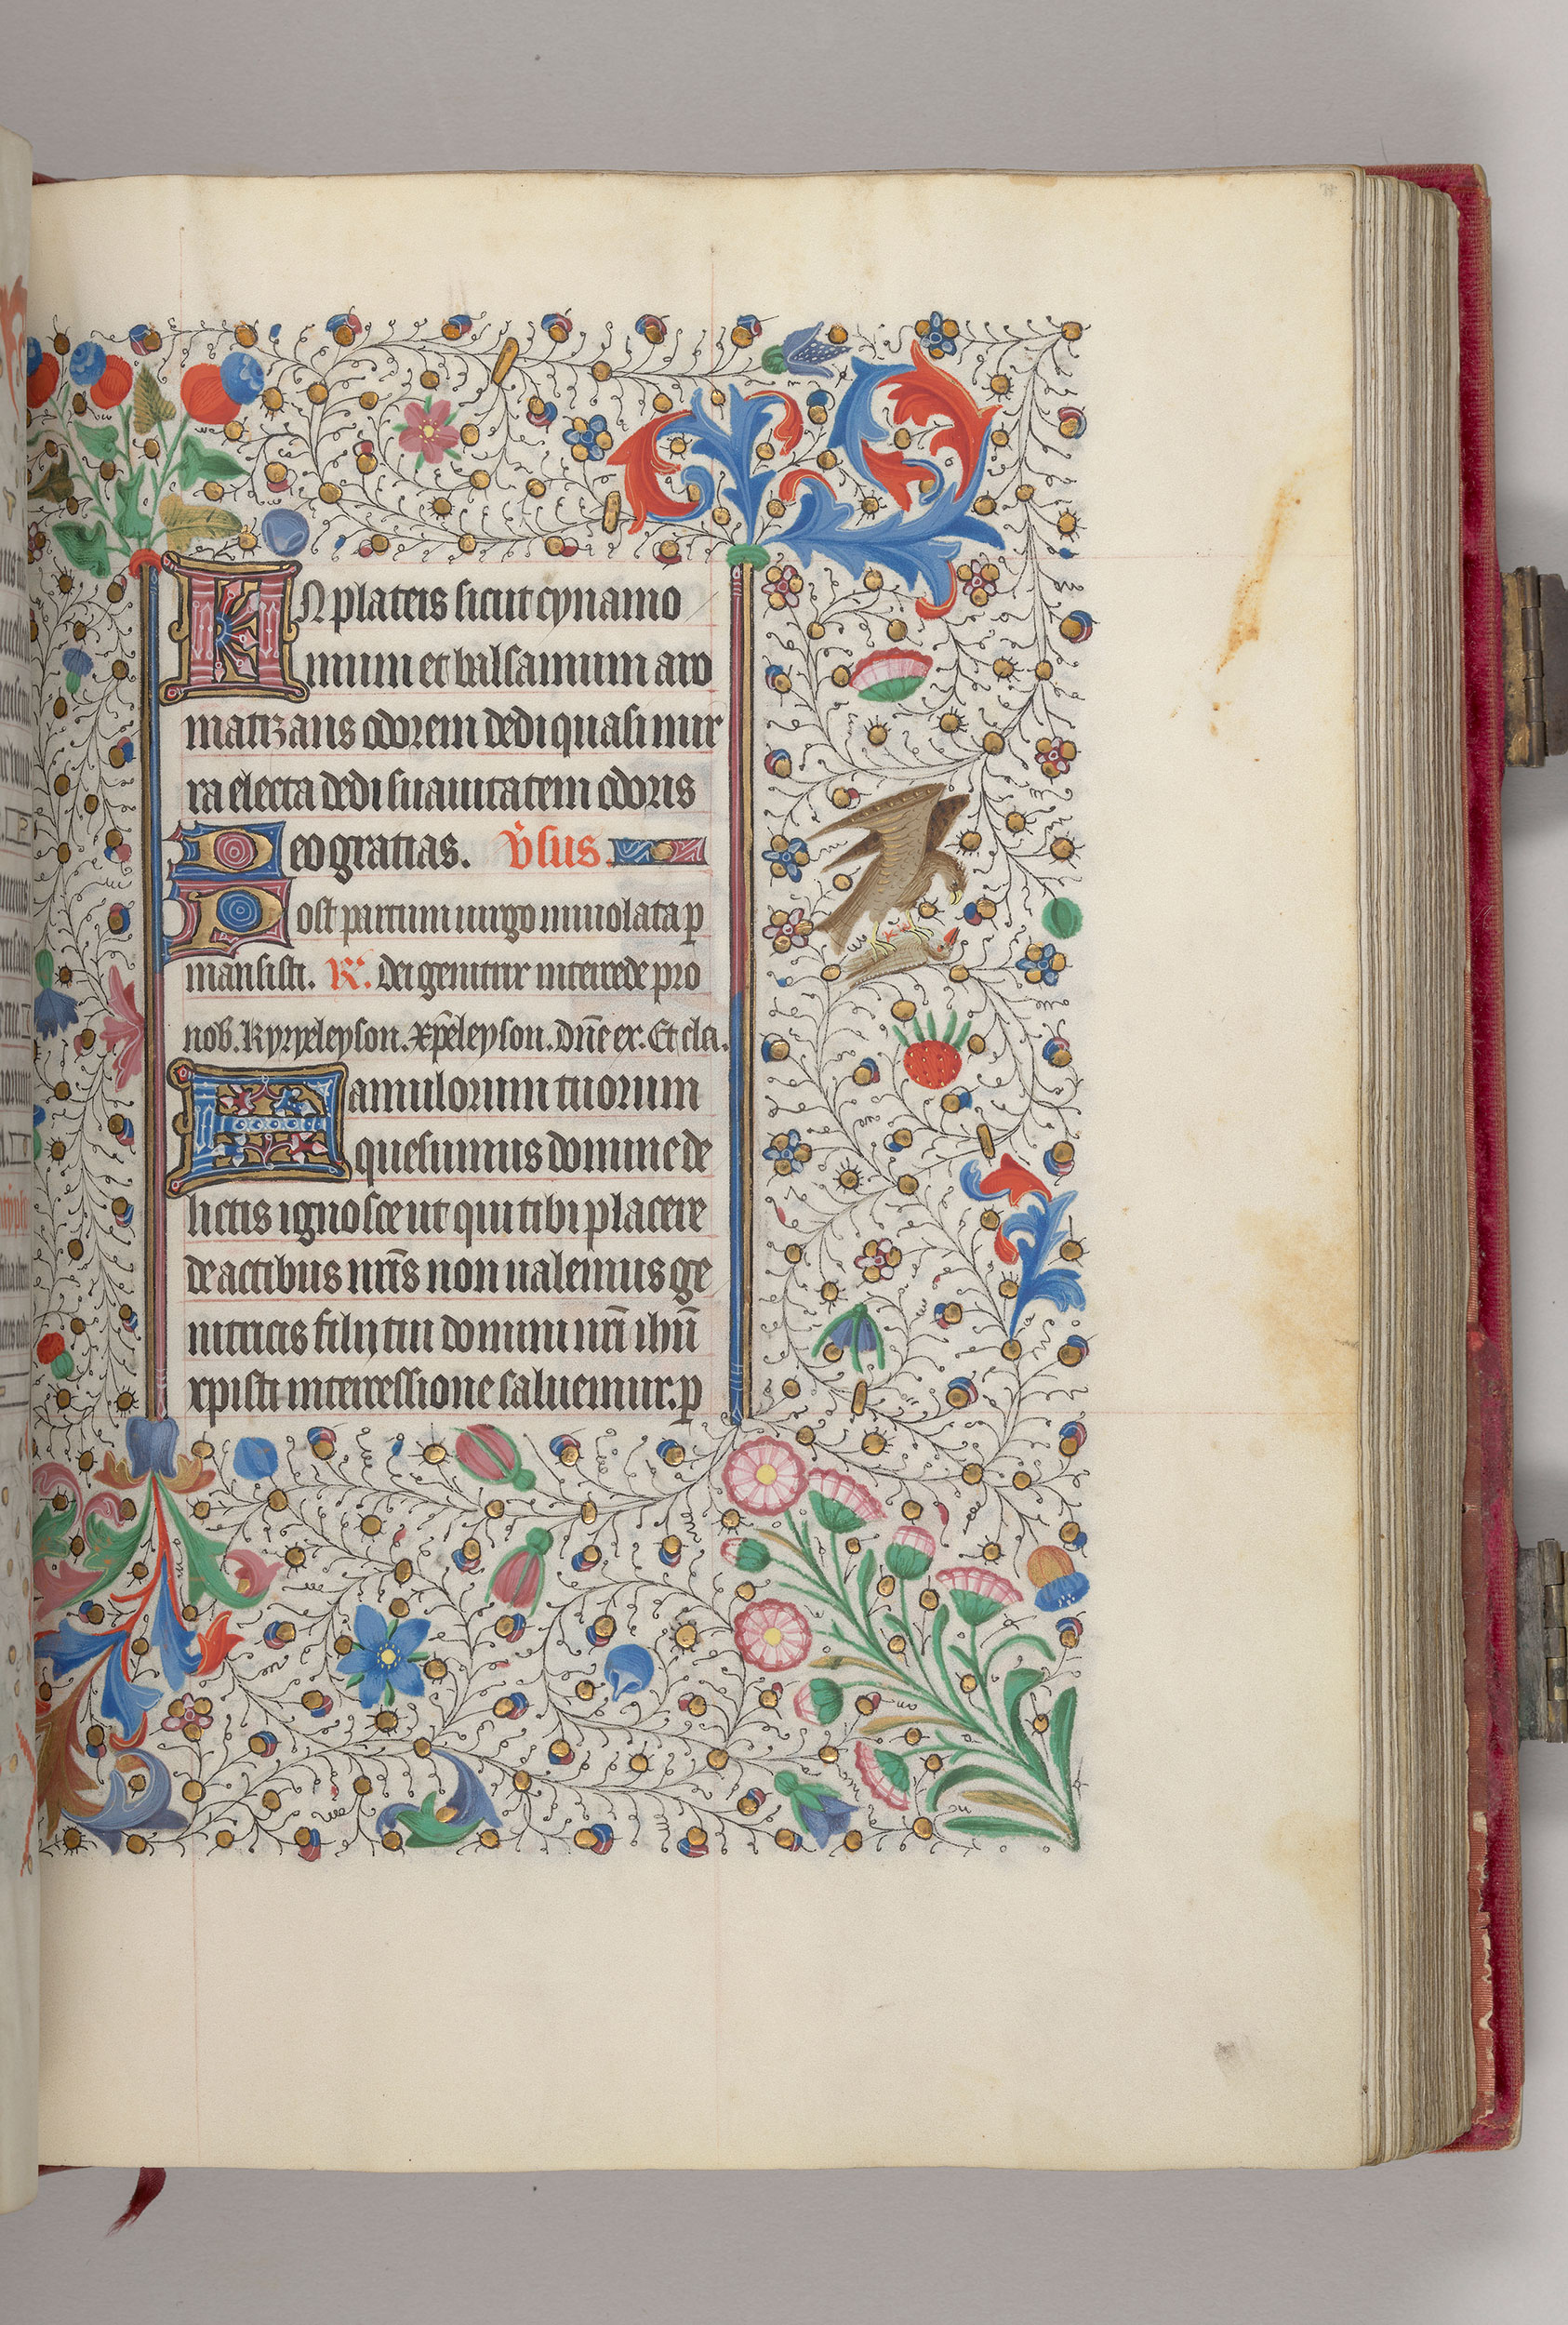 IN plateis sicut cynamo
mum et balsamum aro
matizans odorem dedi quasi mir
ra electa dedi suauitatem odoris
Deo gratias. v̄sus.
Post partum uirgo inuiolata ꝑ
mansisti. R̄. dei genitrix intercede pro
nob. Kyrieleyson. xp̄eleyson. Dn̄e ex. Et cla.
Famulorum tuorum
quesumus domine de
lictis ignosce ut qui tibi placere
de actibus nr̄is non ualemus ge
nitricis filij tui domini nr̄i ih̄u
xpisti intercessione saluemur. ꝑ